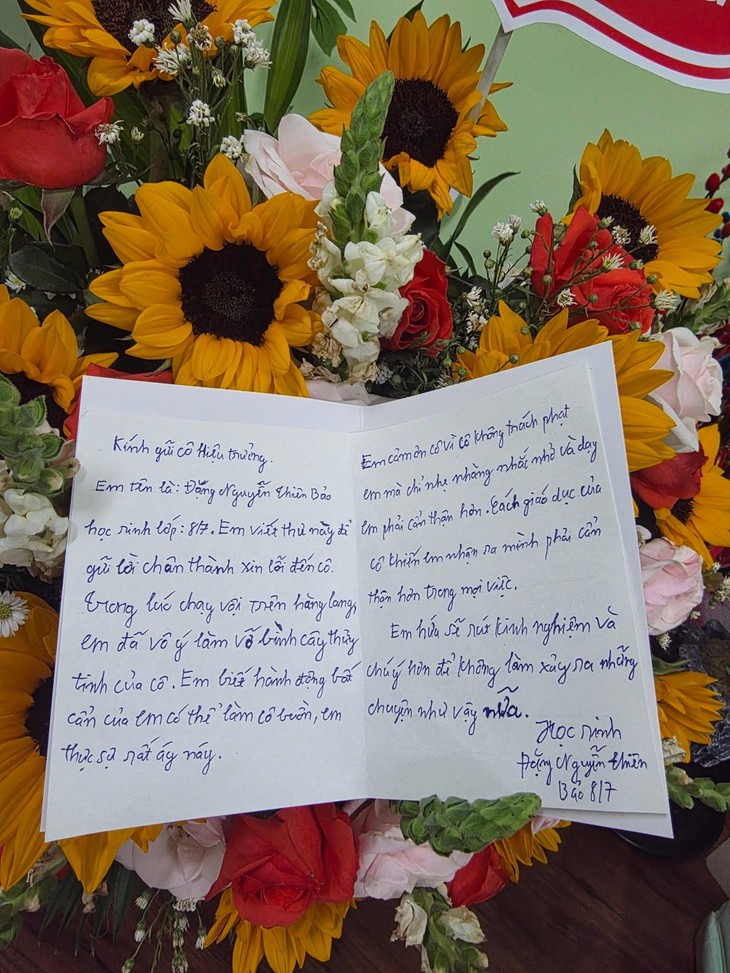 Kính gửi cô Hiệu trưởng.
Em tên là: Đặng Nguyễn Thiên Bảo
học sinh lớp: 8/7. Em viết thư này để
gửi lời chân thành xin lỗi đến cô.
Trong lúc chạy vội trên hàng lang,
em đã vô ý làm vỡ bình cây thủy
tinh của cô. Em biết hành động bất
cẩn của em có thể làm cô buồn, em
thực sự rất áy náy.
Em cảm ơn cô vì cô không trách phạt
em mà chỉ nhẹ nhàng nhắc nhở và dạy
em phải cẩn thận hơn. Cách giáo dục của
cô khiến em nhận ra mình phải cẩn
thận hơn trong mọi việc.
Em hứa sẽ rút kinh nghiệm và
chú ý hơn để không làm xảy ra những
chuyện như vậy nữa.
Học sinh
Đặng Nguyễn Thiên
Bảo 8/7